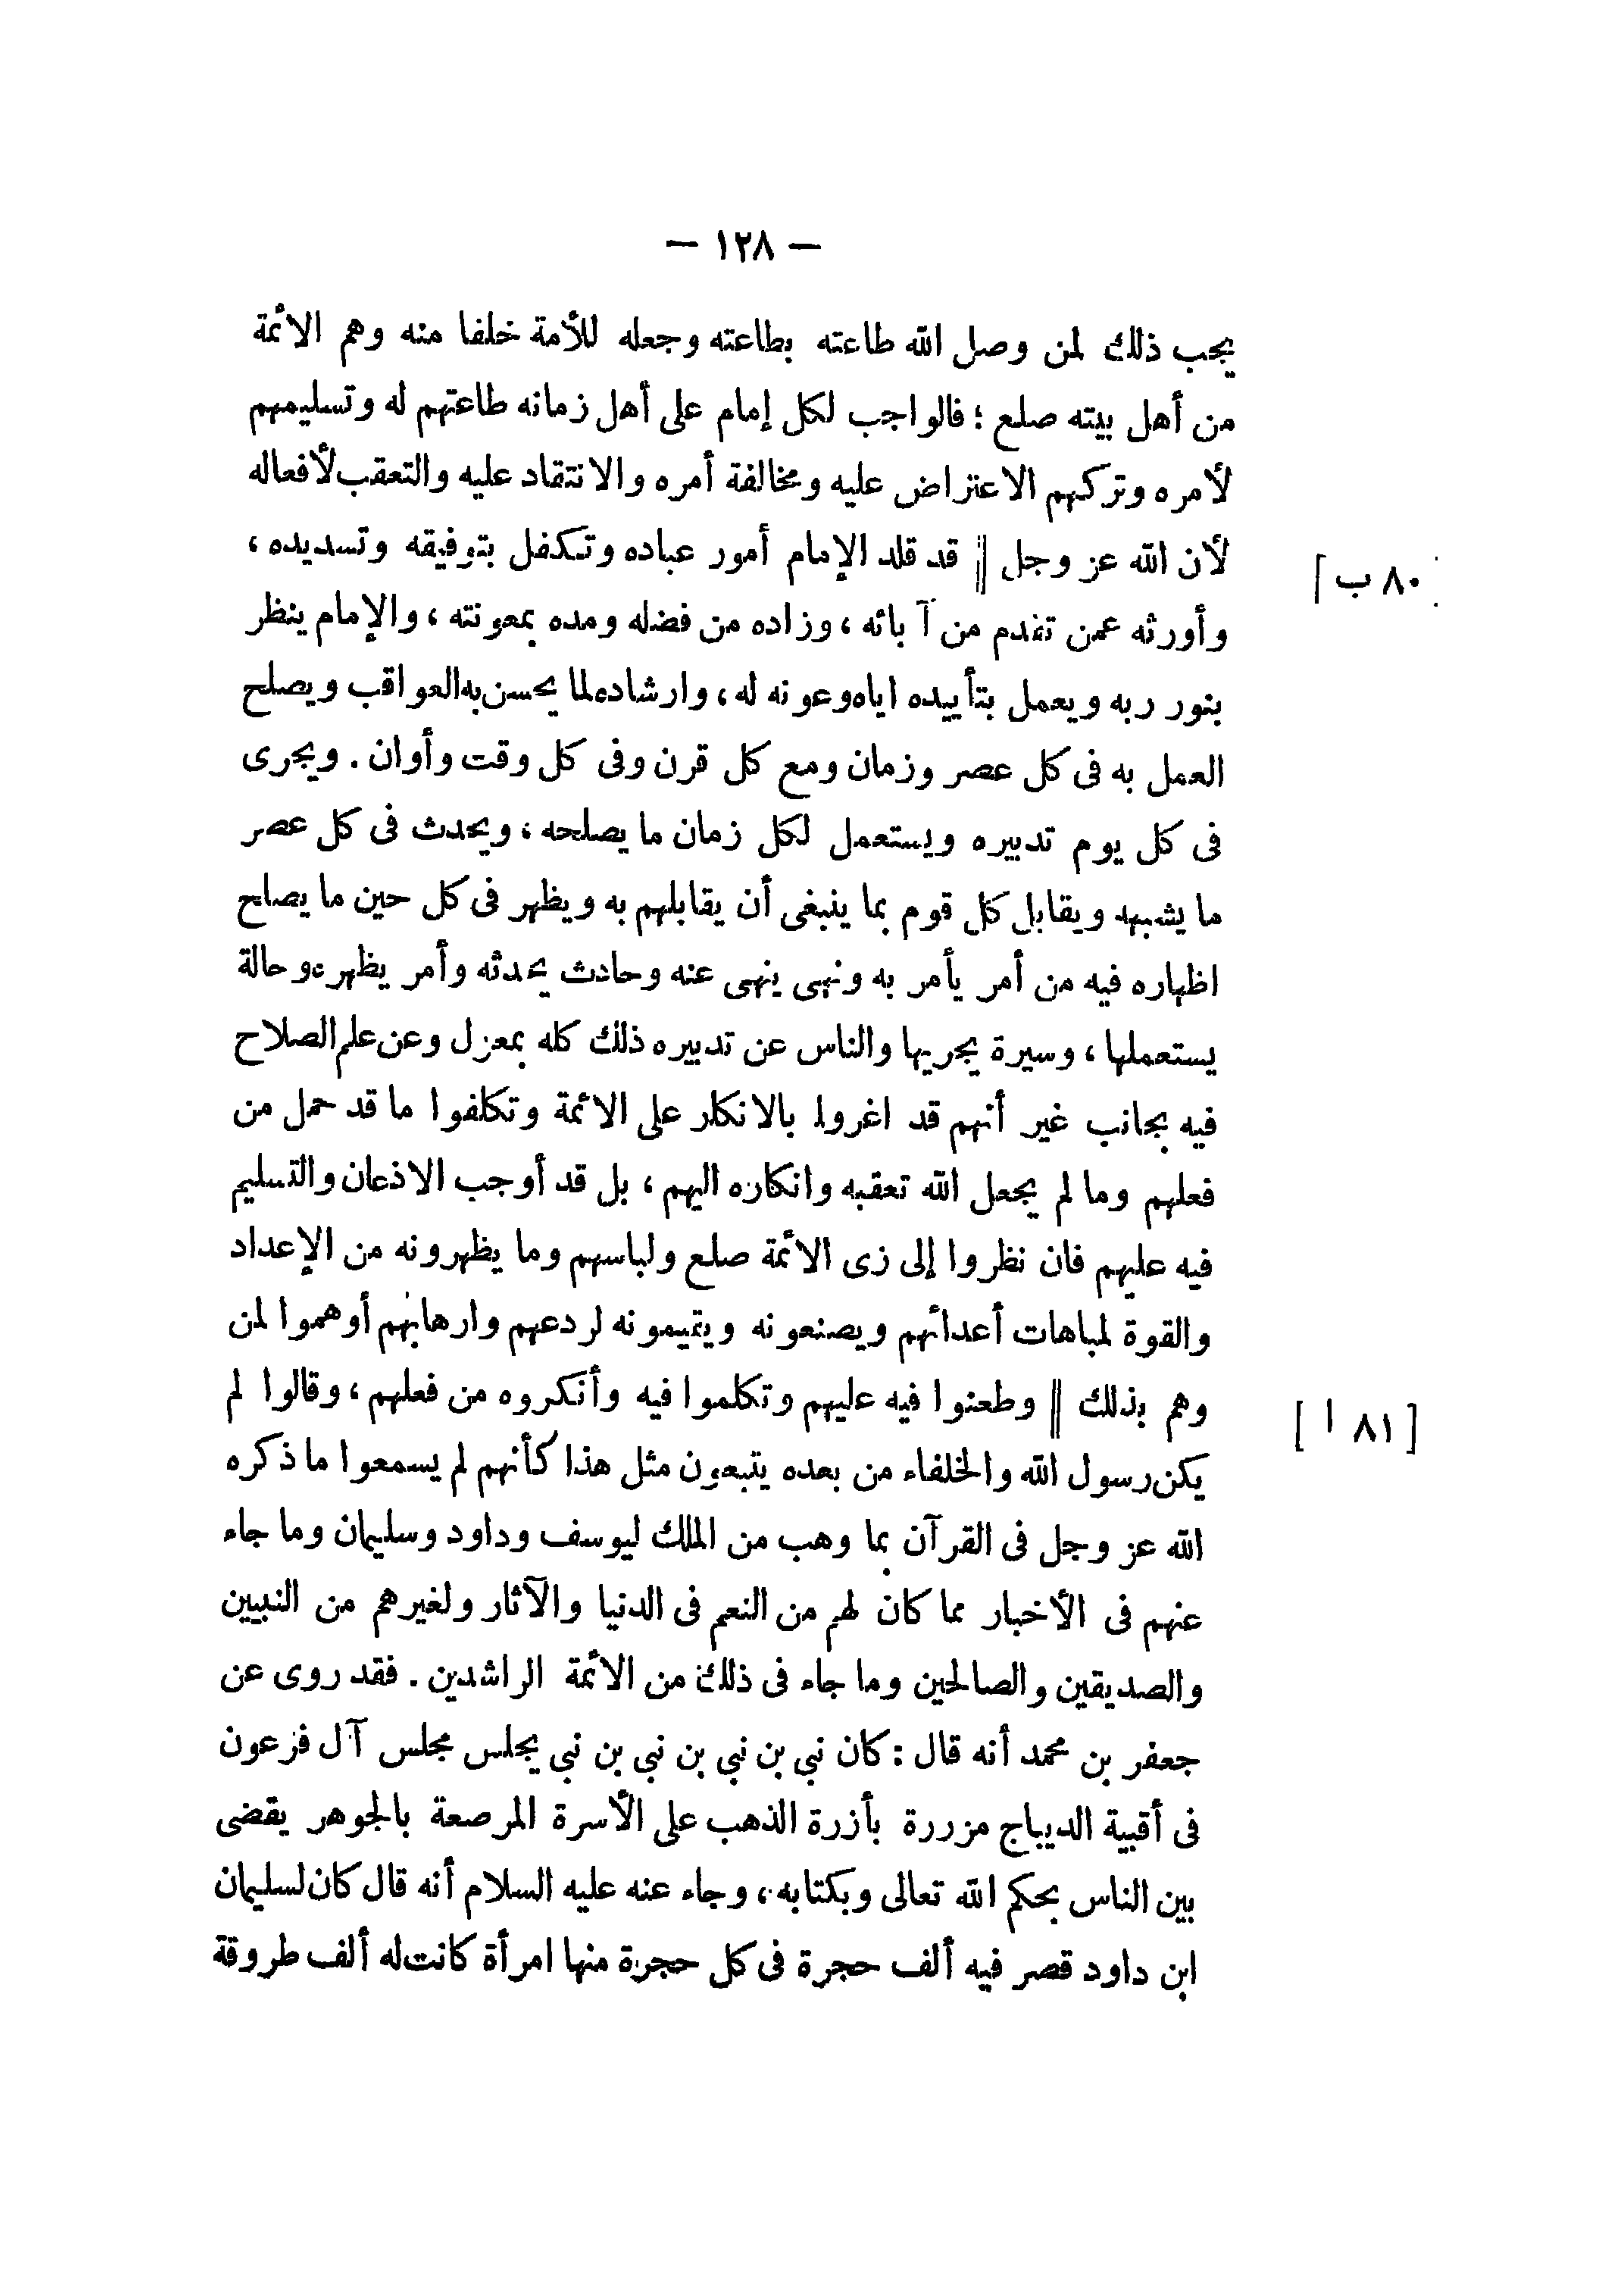 — ١٢٨ —
يجب ذلك لمن وصل الله طاعته بطاعته وجعله للأمة خلفا منه وهم الائمة
من أهل بيته صلع ؛ فالواجب لكل إمام على أهل زمانه طاعتهم له وتسليمهم
لأمره وتركهم الاعتراض عليه ومخالفة أمره والانتقاد عليه والتعقب لأفعاله
لأن الله عز وجل || قد قلد الإمام أمور عباده وتكفل بتوفيقه وتسديده ،
[ ٨٠ ب ]
وأورثه عمن تقدم من آبائه ، وزاده من فضله ومده بمعونته ، والإمام ينظر
بنور ربه ويعمل بتأييده اياه وعونه له ، وارشاده لما يحسن به العواقب ويصلح
العمل به فى كل عصر وزمان ومع كل قرن وفى كل وقت وأوان . ويجرى
فى كل يوم تدبيره ويستعمل لكل زمان ما يصلحه ، ويحدث فى كل عصر
ما يشبهه ويقابل كل قوم بما ينبغى أن يقابلهم به ويظهر فى كل حين ما يصلح
اظهاره فيه من أمر يأمر به ونهى ينهى عنه وحادث يحدثه وأمر يظهره وحالة
يستعملها ، وسيرة يجريها والناس عن تدبيره ذلك كله بمعزل وعن علم الصلاح
فيه بجانب غير أنهم قد اغروا بالانكار على الائمة وتكلفوا ما قد حمل من
فعلهم وما لم يجعل الله تعقبه وانكاره اليهم ، بل قد أوجب الاذعان والتسليم
فيه عليهم فان نظروا إلى زى الائمة صلع ولباسهم وما يظهرونه من الإعداد
والقوة لمباهات أعدائهم ويصنعونه ويقيمونه لردعهم وارهابهم أوهموا لمن
وهم بذلك || وطعنوا فيه عليهم وتكلموا فيه وأنكروه من فعلهم ، وقالوا لم
[ ٨١ ا ]
يكن رسول الله والخلفاء من بعده يتبعون مثل هذا كأنهم لم يسمعوا ما ذكره
الله عز وجل فى القرآن بما وهب من الملك ليوسف وداود وسليمان وما جاء
عنهم فى الأخبار مما كان لهم من النعم فى الدنيا والآثار ولغيرهم من النبيين
والصديقين والصالحين وما جاء فى ذلك من الائمة الراشدين . فقد روى عن
جعفر بن محمد أنه قال : كان نبي بن نبي بن نبى بن نبى يجلس مجلس آل فرعون
فى أقبية الديباج مزررة بأزرة الذهب على الأسرة المرصعة بالجوهر يقضى
بين الناس بحكم الله تعالى وبكتابه ، وجاء عنه عليه السلام أنه قال كان لسليمان
ابن داود قصر فيه ألف حجرة فى كل حجرة منها امرأة كانت له ألف طروقة